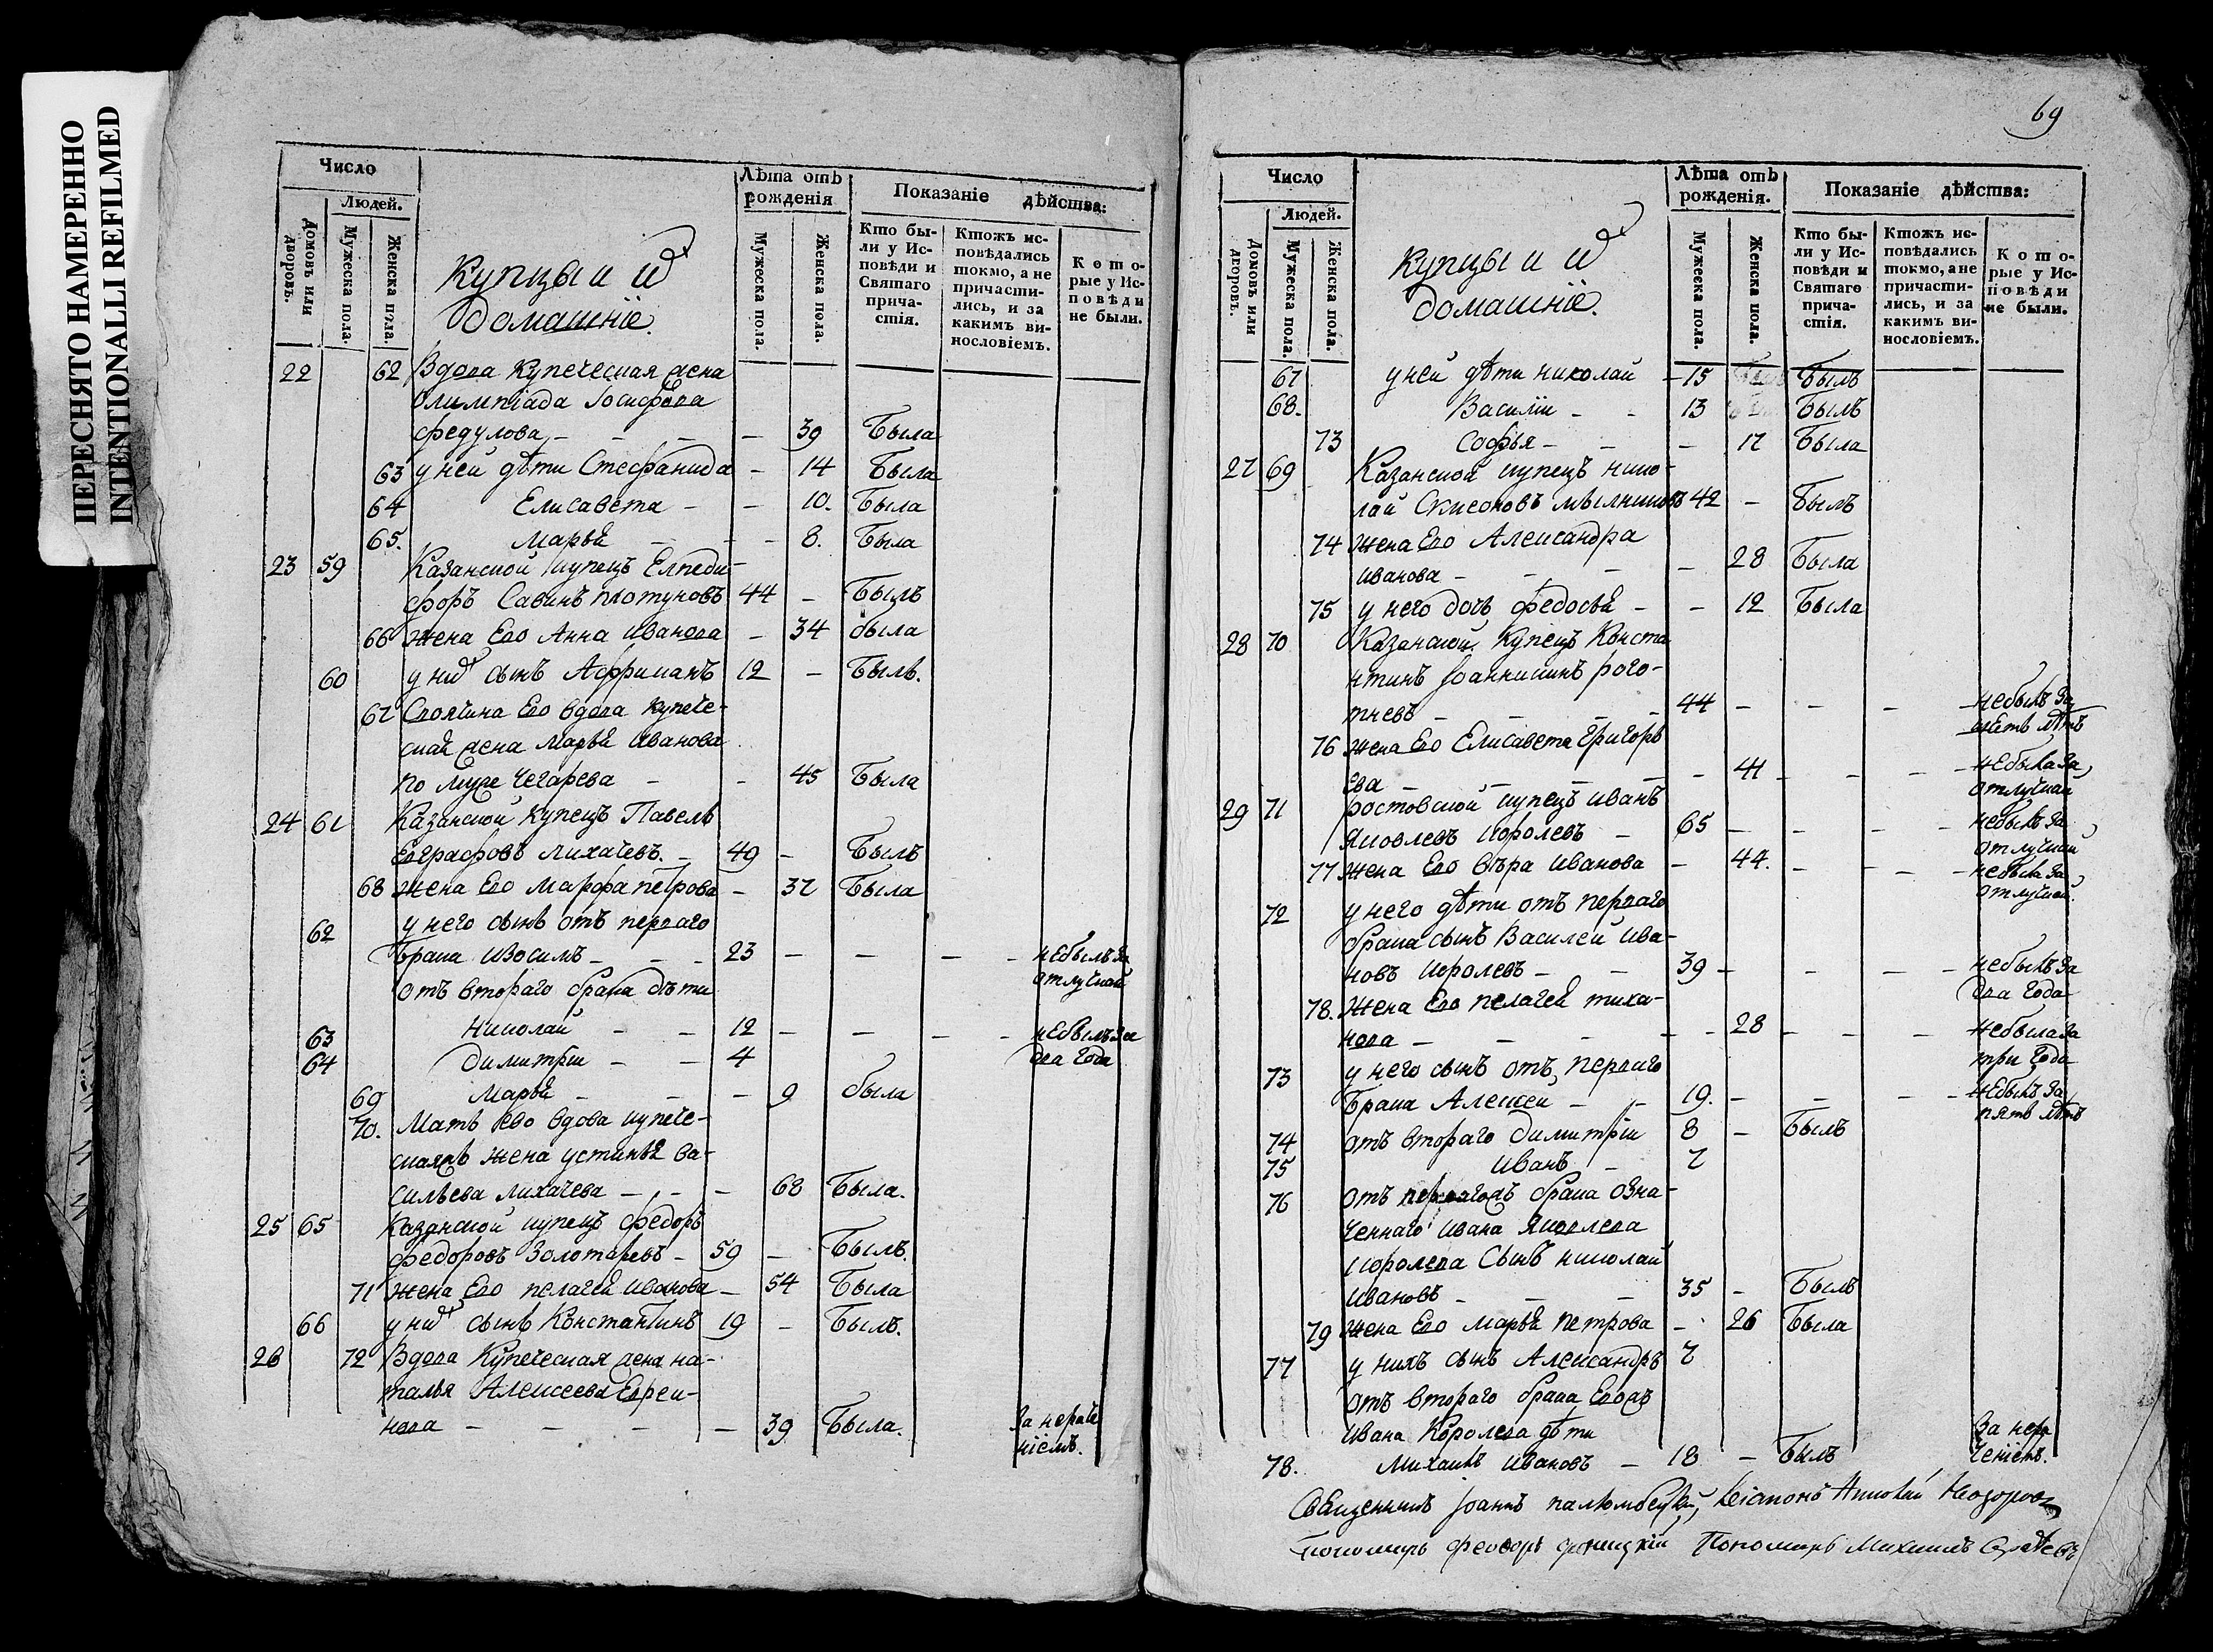 ПЕРЕСНЯТО НАМЕРЕННО
INTENTIONALLI REFILMED
Число
Людей.
Домовъ или дворовъ.
Мужеска пола.
Женска пола.
Купцы и их
домашніе.
Лѣта отъ рожденія
Мужеска пола.
Женска пола.
Показаніе дѣйства:
Кто были у Исповѣди и Святаго причастія.
Ктожъ исповѣдались токмо, а не причастились, и за какимъ винословіемъ.
Которые у Исповѣди не были.
22 62 Вдова купеческая жена
Олимпіада Іосифова
Федулова – – – – 39 Была
63 у ней дѣти Стефанида – 14 Была
64 Елисавета – – 10. Была
65. Марья – – – 8. Была
23 59 Казанской купецъ Елпеди-
форъ Савинъ Плотуновъ 44 – Былъ
66 жена Его Анна Иванова – 34 была
60 у них сынъ Аффриканъ 12 – Былъ.
67 Своячина Его вдова купече-
ская жена Марья Иванова
по муже Чегарева – – 45 Была
24 61 Казанской купецъ Павелъ
Евграфовъ Лихачевъ. – 49 – Былъ
68 жена Его Марфа Петрова – 37 Была
62 у него сынъ отъ перваго
брака Изосимъ – – – 23 – – – – небылъ за
отъ втораго брака дѣти отлучкой
63 Николай – – 12 – – – – небылъ за
64 Димитрій – – 4 два года
69 Марья – – – 9 была
70. Мать Его вдова купече-
ская жена Устинья Ва-
сильева Лихачева – – – 68 Была.
25 65 Казанской купецъ Федоръ
Федоровъ Золотаревъ – 59 – Былъ.
71 жена Его Пелагея Иванова – 54 Была
66 у них сынъ Константинъ 19 – Былъ.
26 72 Вдова купеческая жена На-
талья Алексеева Евреи-
нова – – – – – 39 Была. За нераче
ніемъ.
69
Число
Людей.
Домовъ или дворовъ.
Мужеска пола.
Женска пола.
Купцы и их
домашніе.
Лѣта отъ рожденія.
Мужеска пола.
Женска пола.
Показаніе дѣйства:
Кто были у Исповѣди и Святаго причастія.
Ктожъ исповѣдались токмо, а не причастились, и за какимъ винословіемъ.
Которые у Исповѣди не были.
67 у ней дѣти Николай – 15 Былъ
68. Василіи – – 13 Былъ
73 Софья – – – 17 Была
27 69 Казанской купецъ Нико-
лай Мыльниковъ 42 – Былъ
74 жена Его Александра
Иванова – – – – 28 Была
75 у него дочь Федосья – – 12 Была
28 70 Казанской купецъ Конста
нтинъ Іоанникинъ Рого-
тневъ – – – – 44 – – – небылъ за
лѣтъ
76 жена Его Елисавета Григорь
ева – – – – – 41 – – – – небыла за
отлучкой
29 71 Ростовской купецъ Иванъ
Яковлевъ Королевъ – 65 – – – – небылъ за
отлучкой
77 жена Его Вѣра Иванова – 44. – – – – небыла за
отлучкой.
72 у него дѣти отъ перваго
брака сынъ Василей Ива-
новъ Королевъ – – 39 – – – – небылъ за
два года
78. жена Его Пелагея Тиха-
нова – – – – – 28 – – – небыла за
три года
73 у него сынъ отъ перваго
брака Алексеи – – 19. – – – – небылъ за
пять лѣтъ
74 отъ втораго Димитріи 8 – Былъ
75 Иванъ – 7
76 отъ брака озна-
ченнаго Ивана Яковлева
Королева сынъ Николай
Ивановъ – – – 35 – Былъ
79 жена Его Марья Петрова – 26 Была
77 у нихъ сынъ Александръ 7
отъ втораго брака
Ивана Королева дѣти
78. Михаилъ Ивановъ – 18 – Былъ За нера
ченіемъ.
Священникъ Іоаннъ Діаконъ Николай
Феодоръ Пономарь Михаилъ